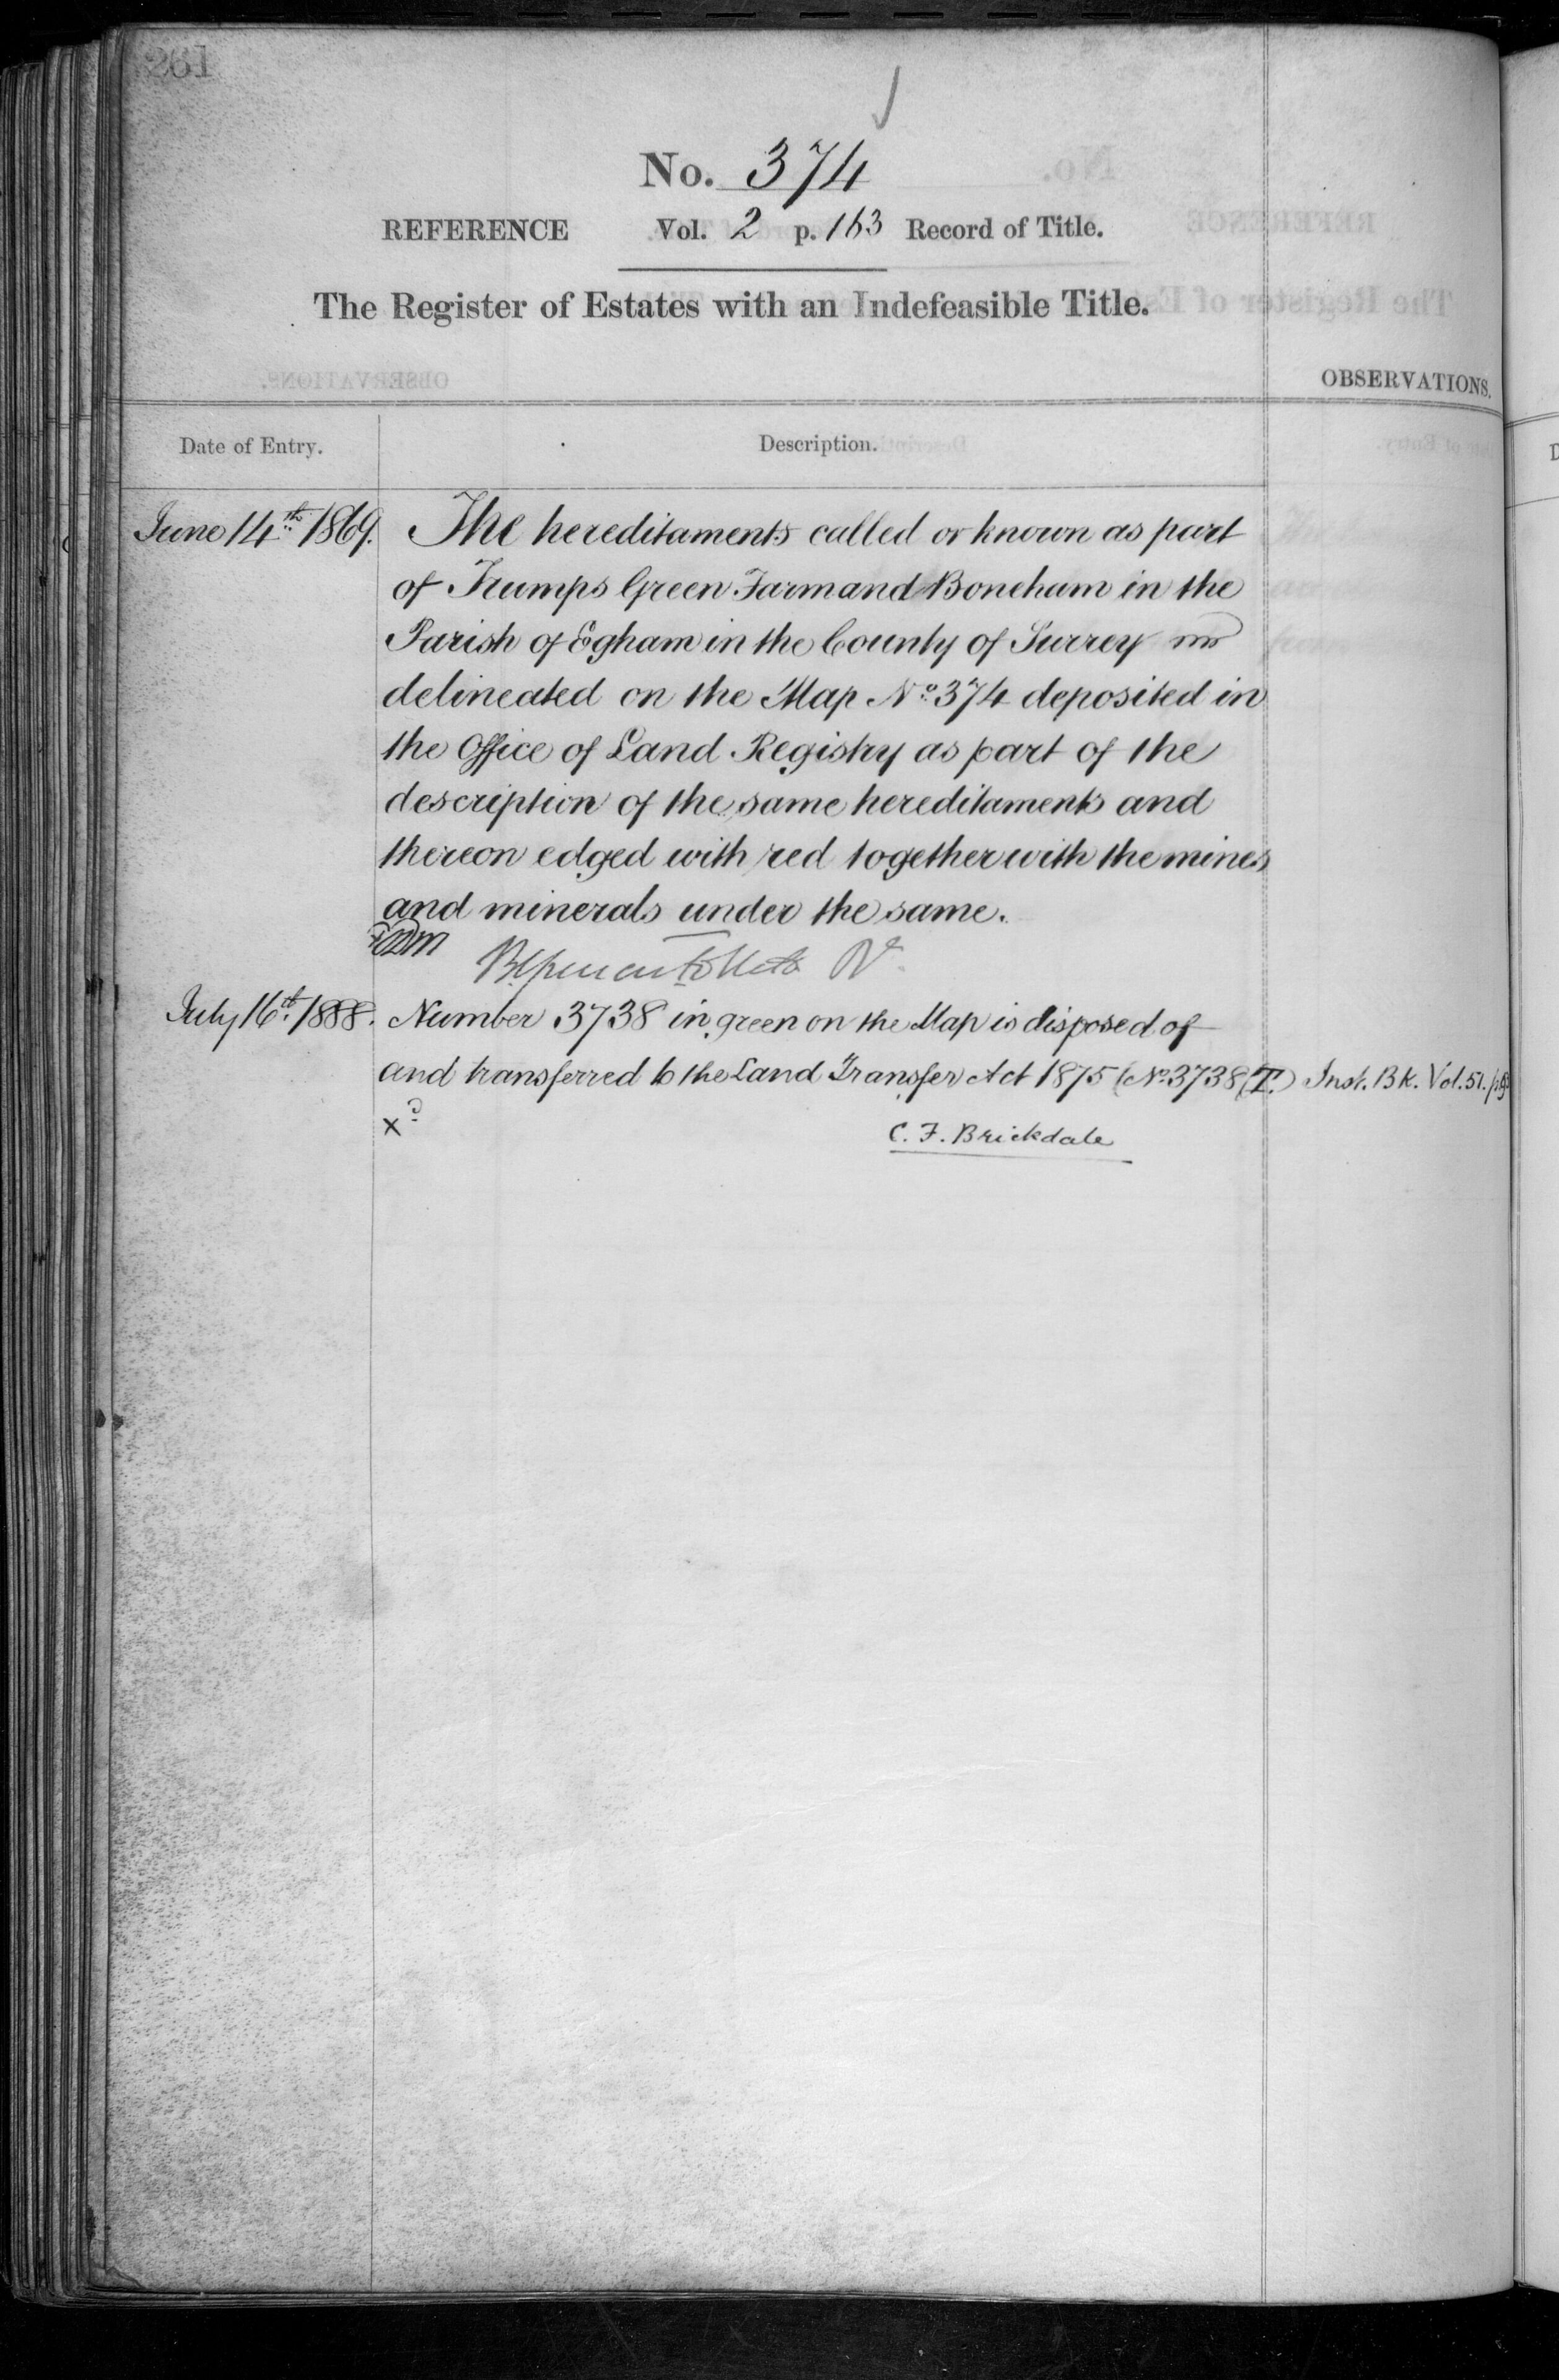 No. 374
REFERENCE Vol. 2 p. 163 Record of Title.
The Register of Estates with an Indefeasible Title.
OBSERVATIONS.
Date of Entry. Description.
June 14th 1869. The hereditaments called or known as part
of Trumps Green Farm and Boneham in the
Parish of Egham in the County of Surrey
delineated on the Map No. 374 deposited in
the Office of Land Registry as part of the
description of the same hereditaments and
thereon edged with red together with the mines
and minerals under the same.
July 16th 1888. Number 3738 in green on the Map is disposed of
and transferred to the Land Transfer Act 1875 (No. 3738 (T.) Inst. Bk. Vol. 51.
xd
C. F. Brickdale